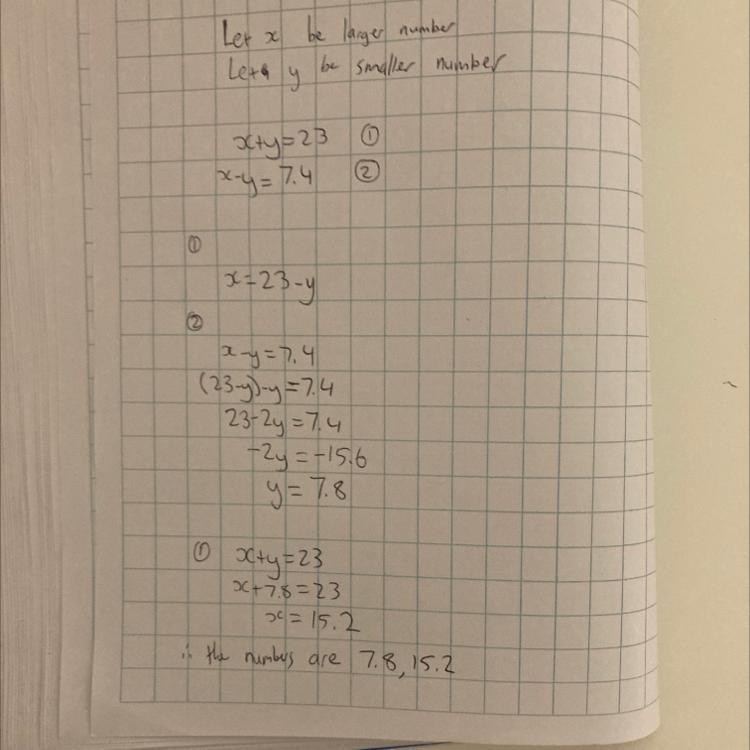 Let x be larger number
Let y be smaller number
x+y=23 ①
x-y=7.4 ②
①
x=23-y
②
x-y=7.4
(23-y)-y=7.4
23-2y=7.4
-2y=-15.6
y=7.8
① x+y=23
x+7.8=23
x=15.2
∴ the numbers are 7.8, 15.2